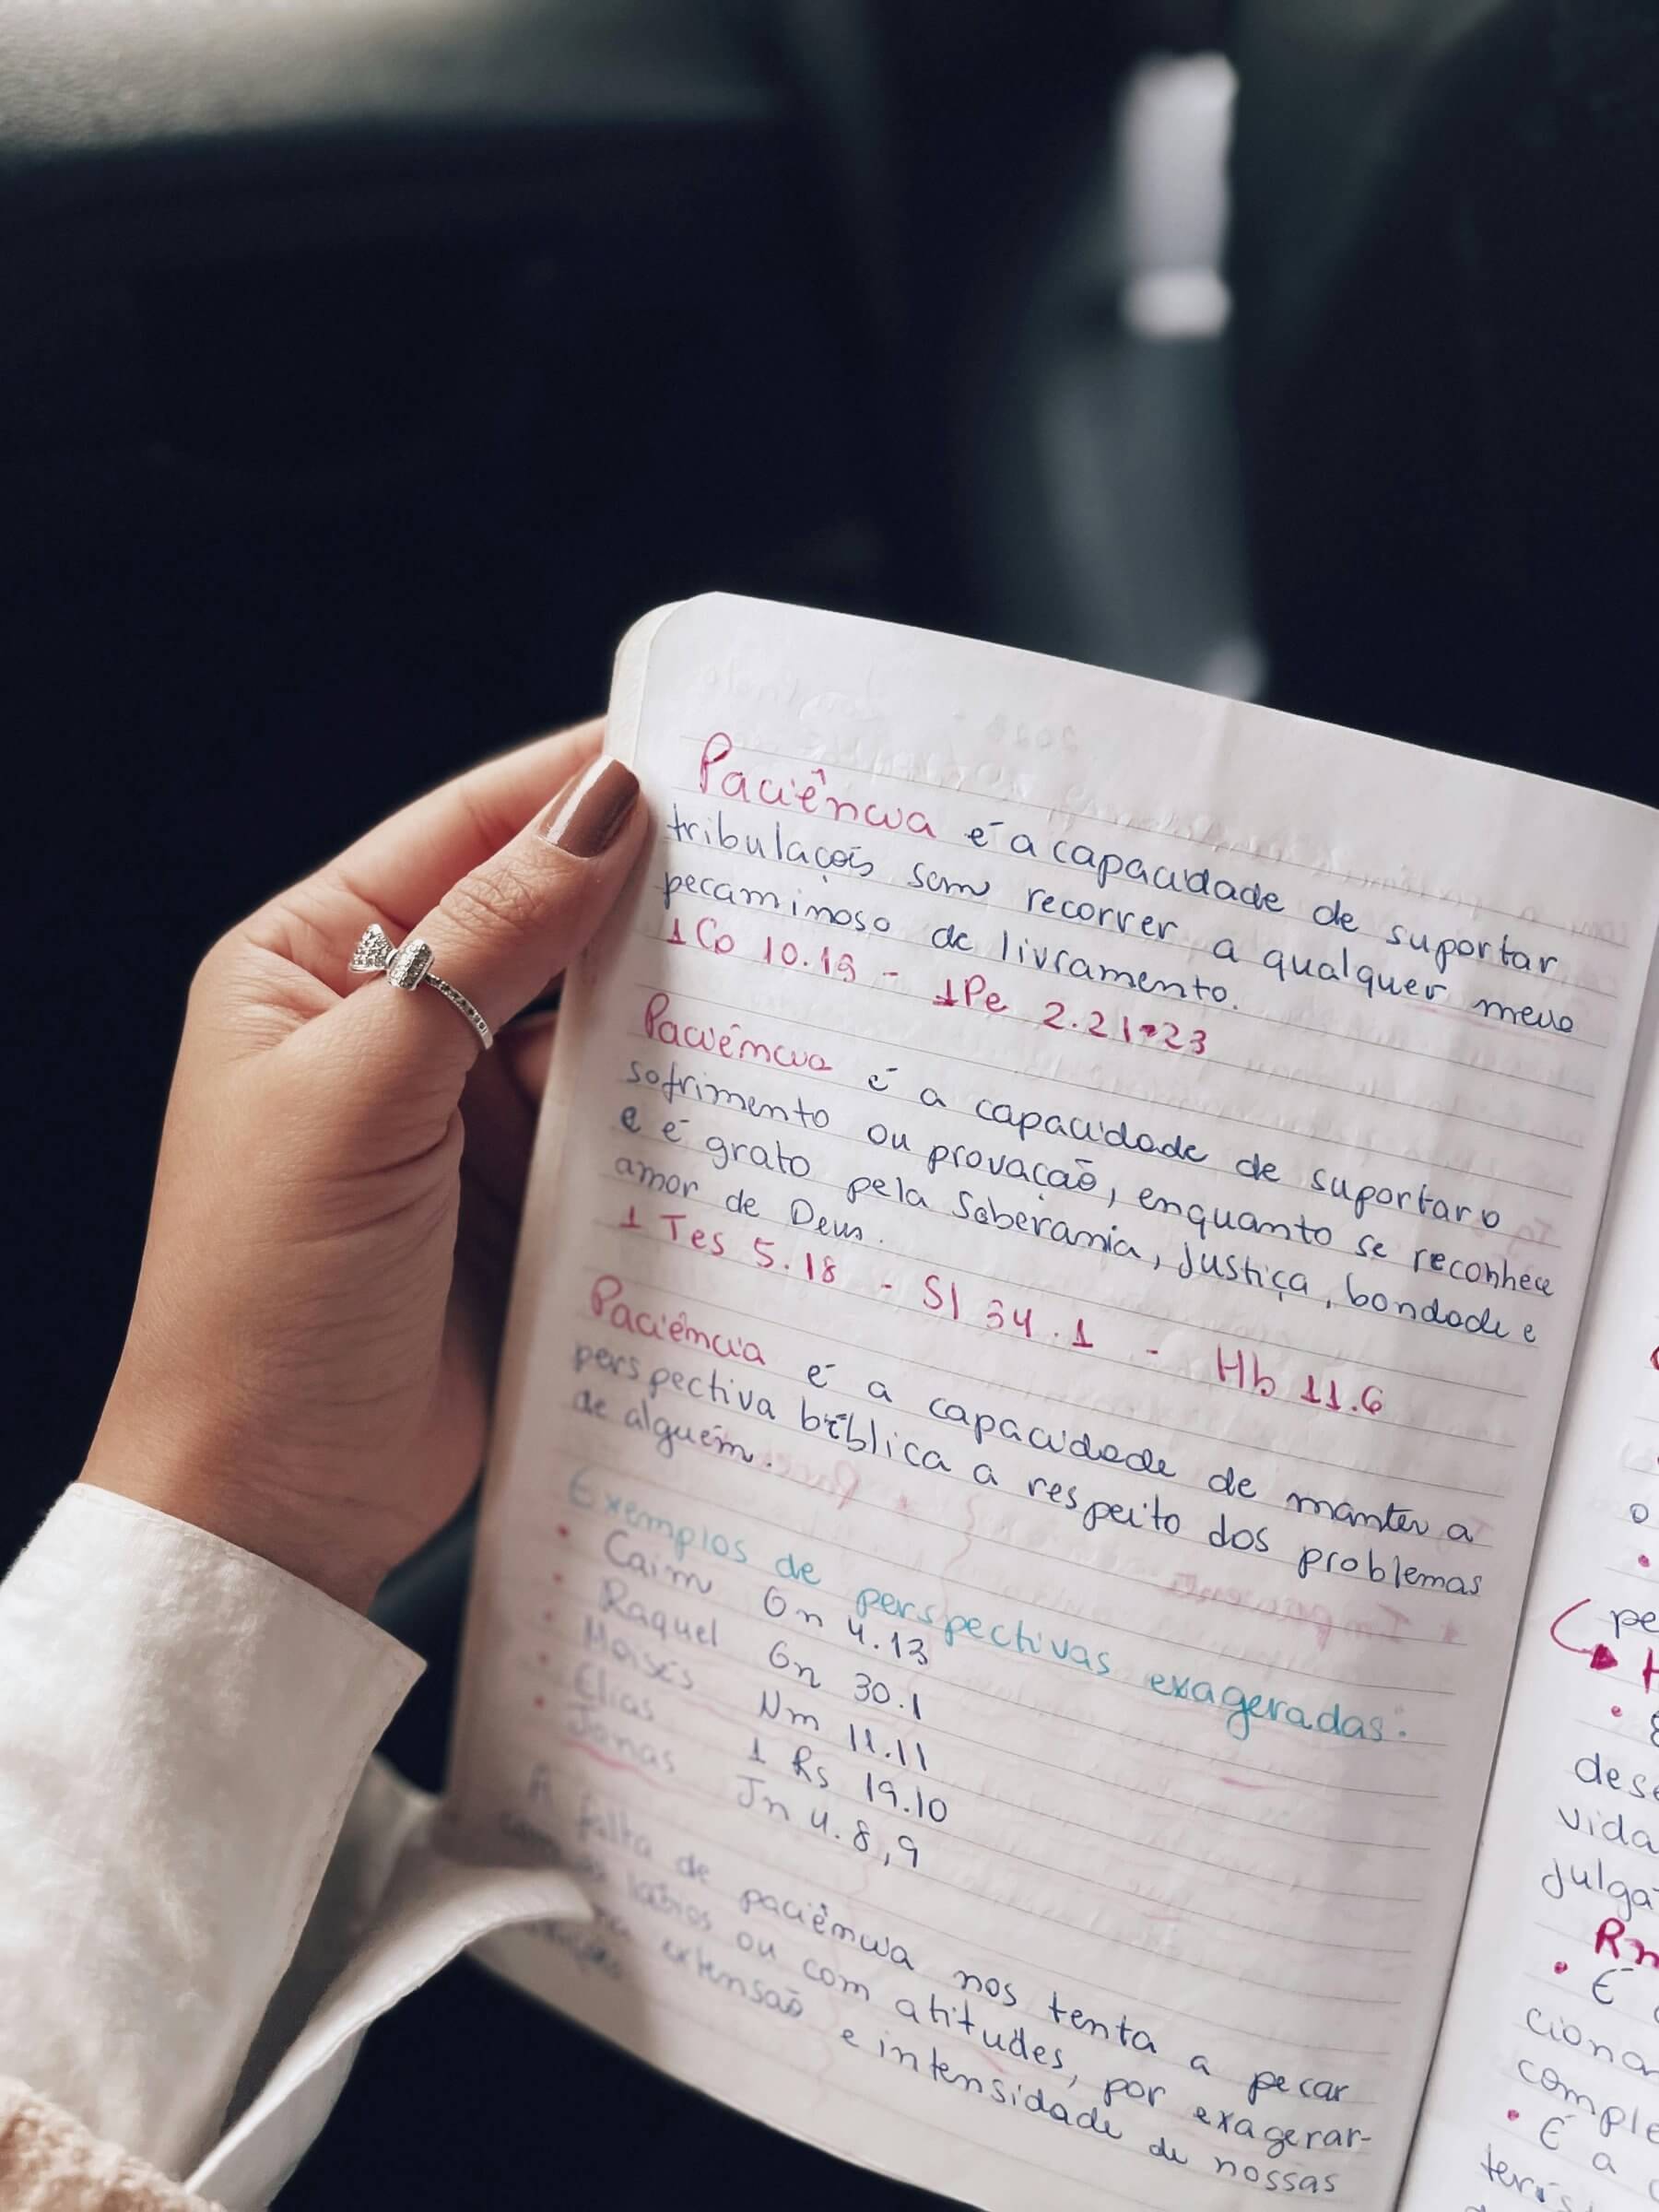 Paciência é a capacidade de suportar
tribulações sem recorrer a qualquer meio
pecaminoso de livramento.
1 Co 10.13 - 1Pe 2.21-23
Paciência é a capacidade de suportar o
sofrimento ou provação, enquanto se reconhece
e é grato pela Soberania, justiça, bondade e
amor de Deus.
1 Tes 5.18 - Sl 34.1 - Hb 11.6
Paciência é a capacidade de manter a
perspectiva bíblica a respeito dos problemas
de alguém.
Exemplos de perspectivas exageradas:
• Caim Gn 4.13
• Raquel Gn 30.1
• Moisés Nm 11.11
• Elias 1 Rs 19.10
• Jonas Jn 4.8,9
A falta de paciência nos tenta a pecar
lábios ou com atitudes, por exagerar-
extensão e intensidade de nossas
o
pe
H
dese
vida
julga
Rm
• É
ciona
comple
• É a